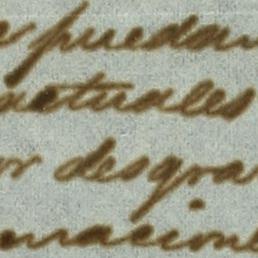 puedan
actuales
or desgra
maciones